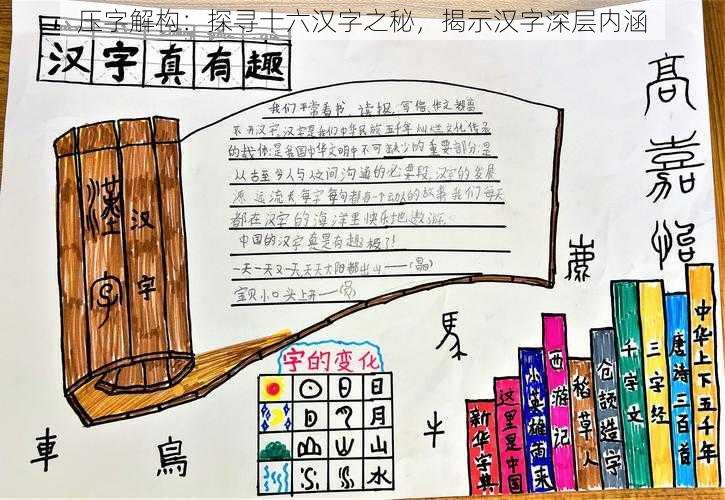 压字解构：探寻十六汉字之秘，揭示汉字深层内涵
汉字真有趣
高嘉怡
漢字
汉字
我们平常看书、读报、写信、作文都离
不开汉字,汉字是我们中华民族五千年灿烂文化传承
的载体,是我国中华文明中不可缺少的重要部分,是
从古至今人与人之间沟通的必要段,汉字的发展
源远流长每字每句都有一个动人的故事我们每天
都在汉字的海洋里快乐地遨游。
中国的汉字真是有趣极了!
一天一天又一天天天太阳都出山——(晶)
宝贝小口头上开——
字的变化
日
月
山
水
鹿
馬
牛
車
鳥
新华字典
这里是中国
小英雄雨来
西游记
稻草人
仓颉造字
千字文
三字经
唐诗三百首
中华上下五千年